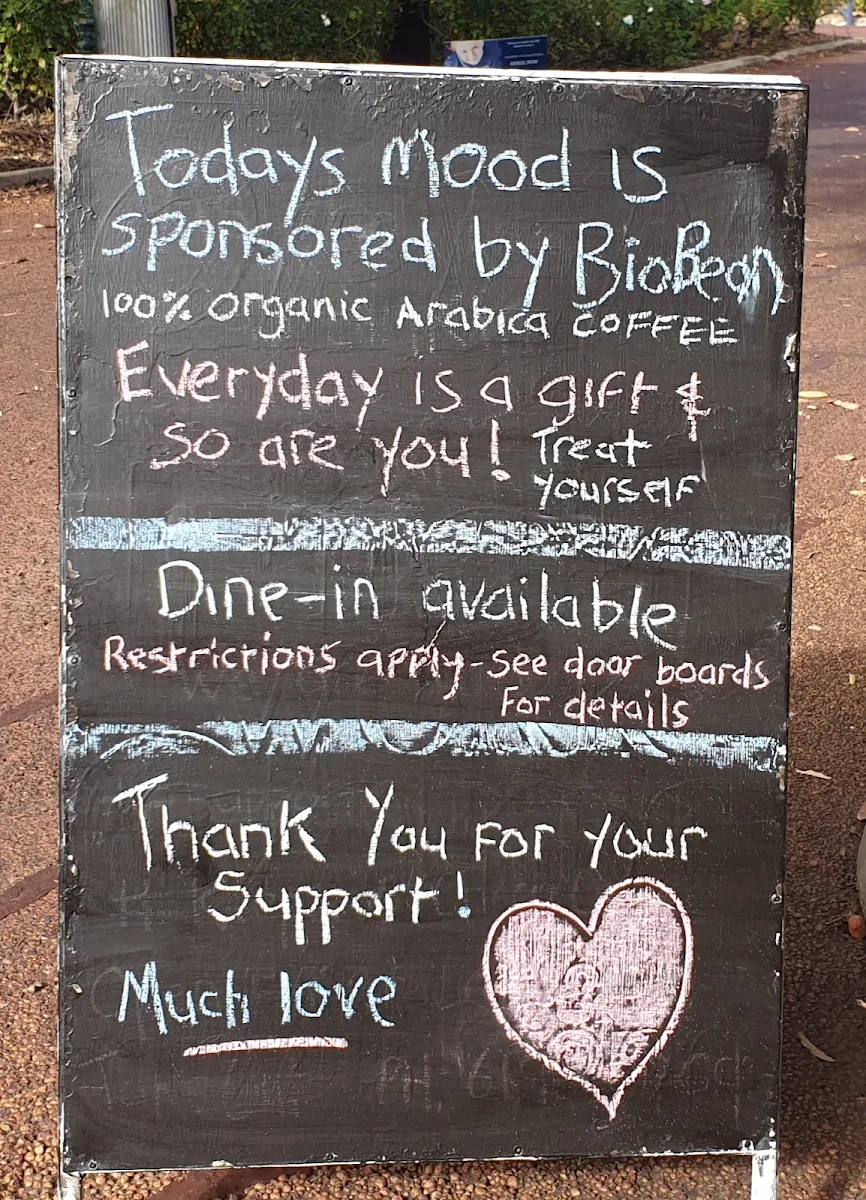 Todays Mood is
sponsored by BioBean
100% organic Arabica COFFEE
Everyday is a gift &
so are you! Treat
yourself
Dine-in available
Restrictions apply-see door boards
For details
Thank You For your
Support!
Much love